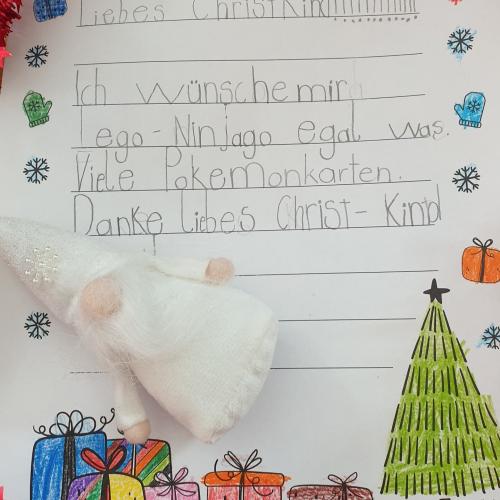 Liebes Christkind!!!!!!!!!!!!!!
Ich wünsche mir
Lego-Ninjago egal was.
Viele Pokemonkarten.
Danke liebes Christ-Kind